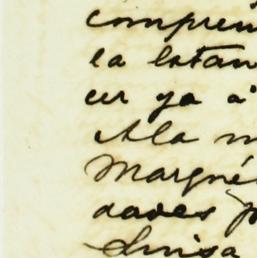 compren
la lotan
cer ya á
Ala m
Marqués
dades p
Luisa